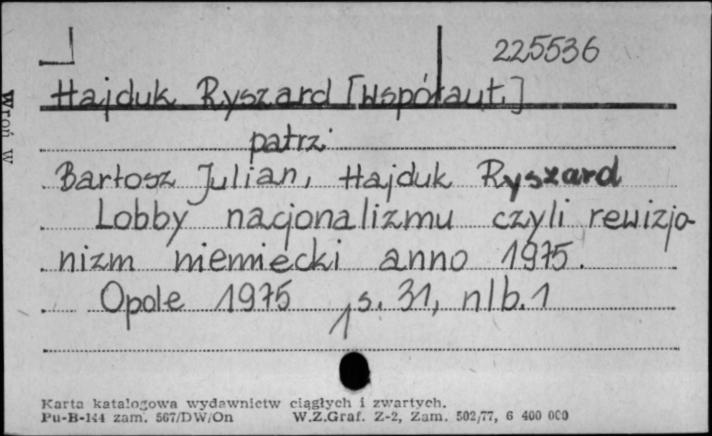 225536
Hajduk Ryszard [Współaut.]
patrz:
Bartosz Julian, Hajduk Ryszard
Lobby nacjonalizmu czyli rewizjo-
nizm niemiecki anno 1975.
Opole 1975, s. 31, nlb. 1
Karta katalogowa wydawnictw ciągłych i zwartych.
Pu-B-144 zam. 567/DW/On W.Z.Graf. Z-2, Zam. 502/77, 6 400 000